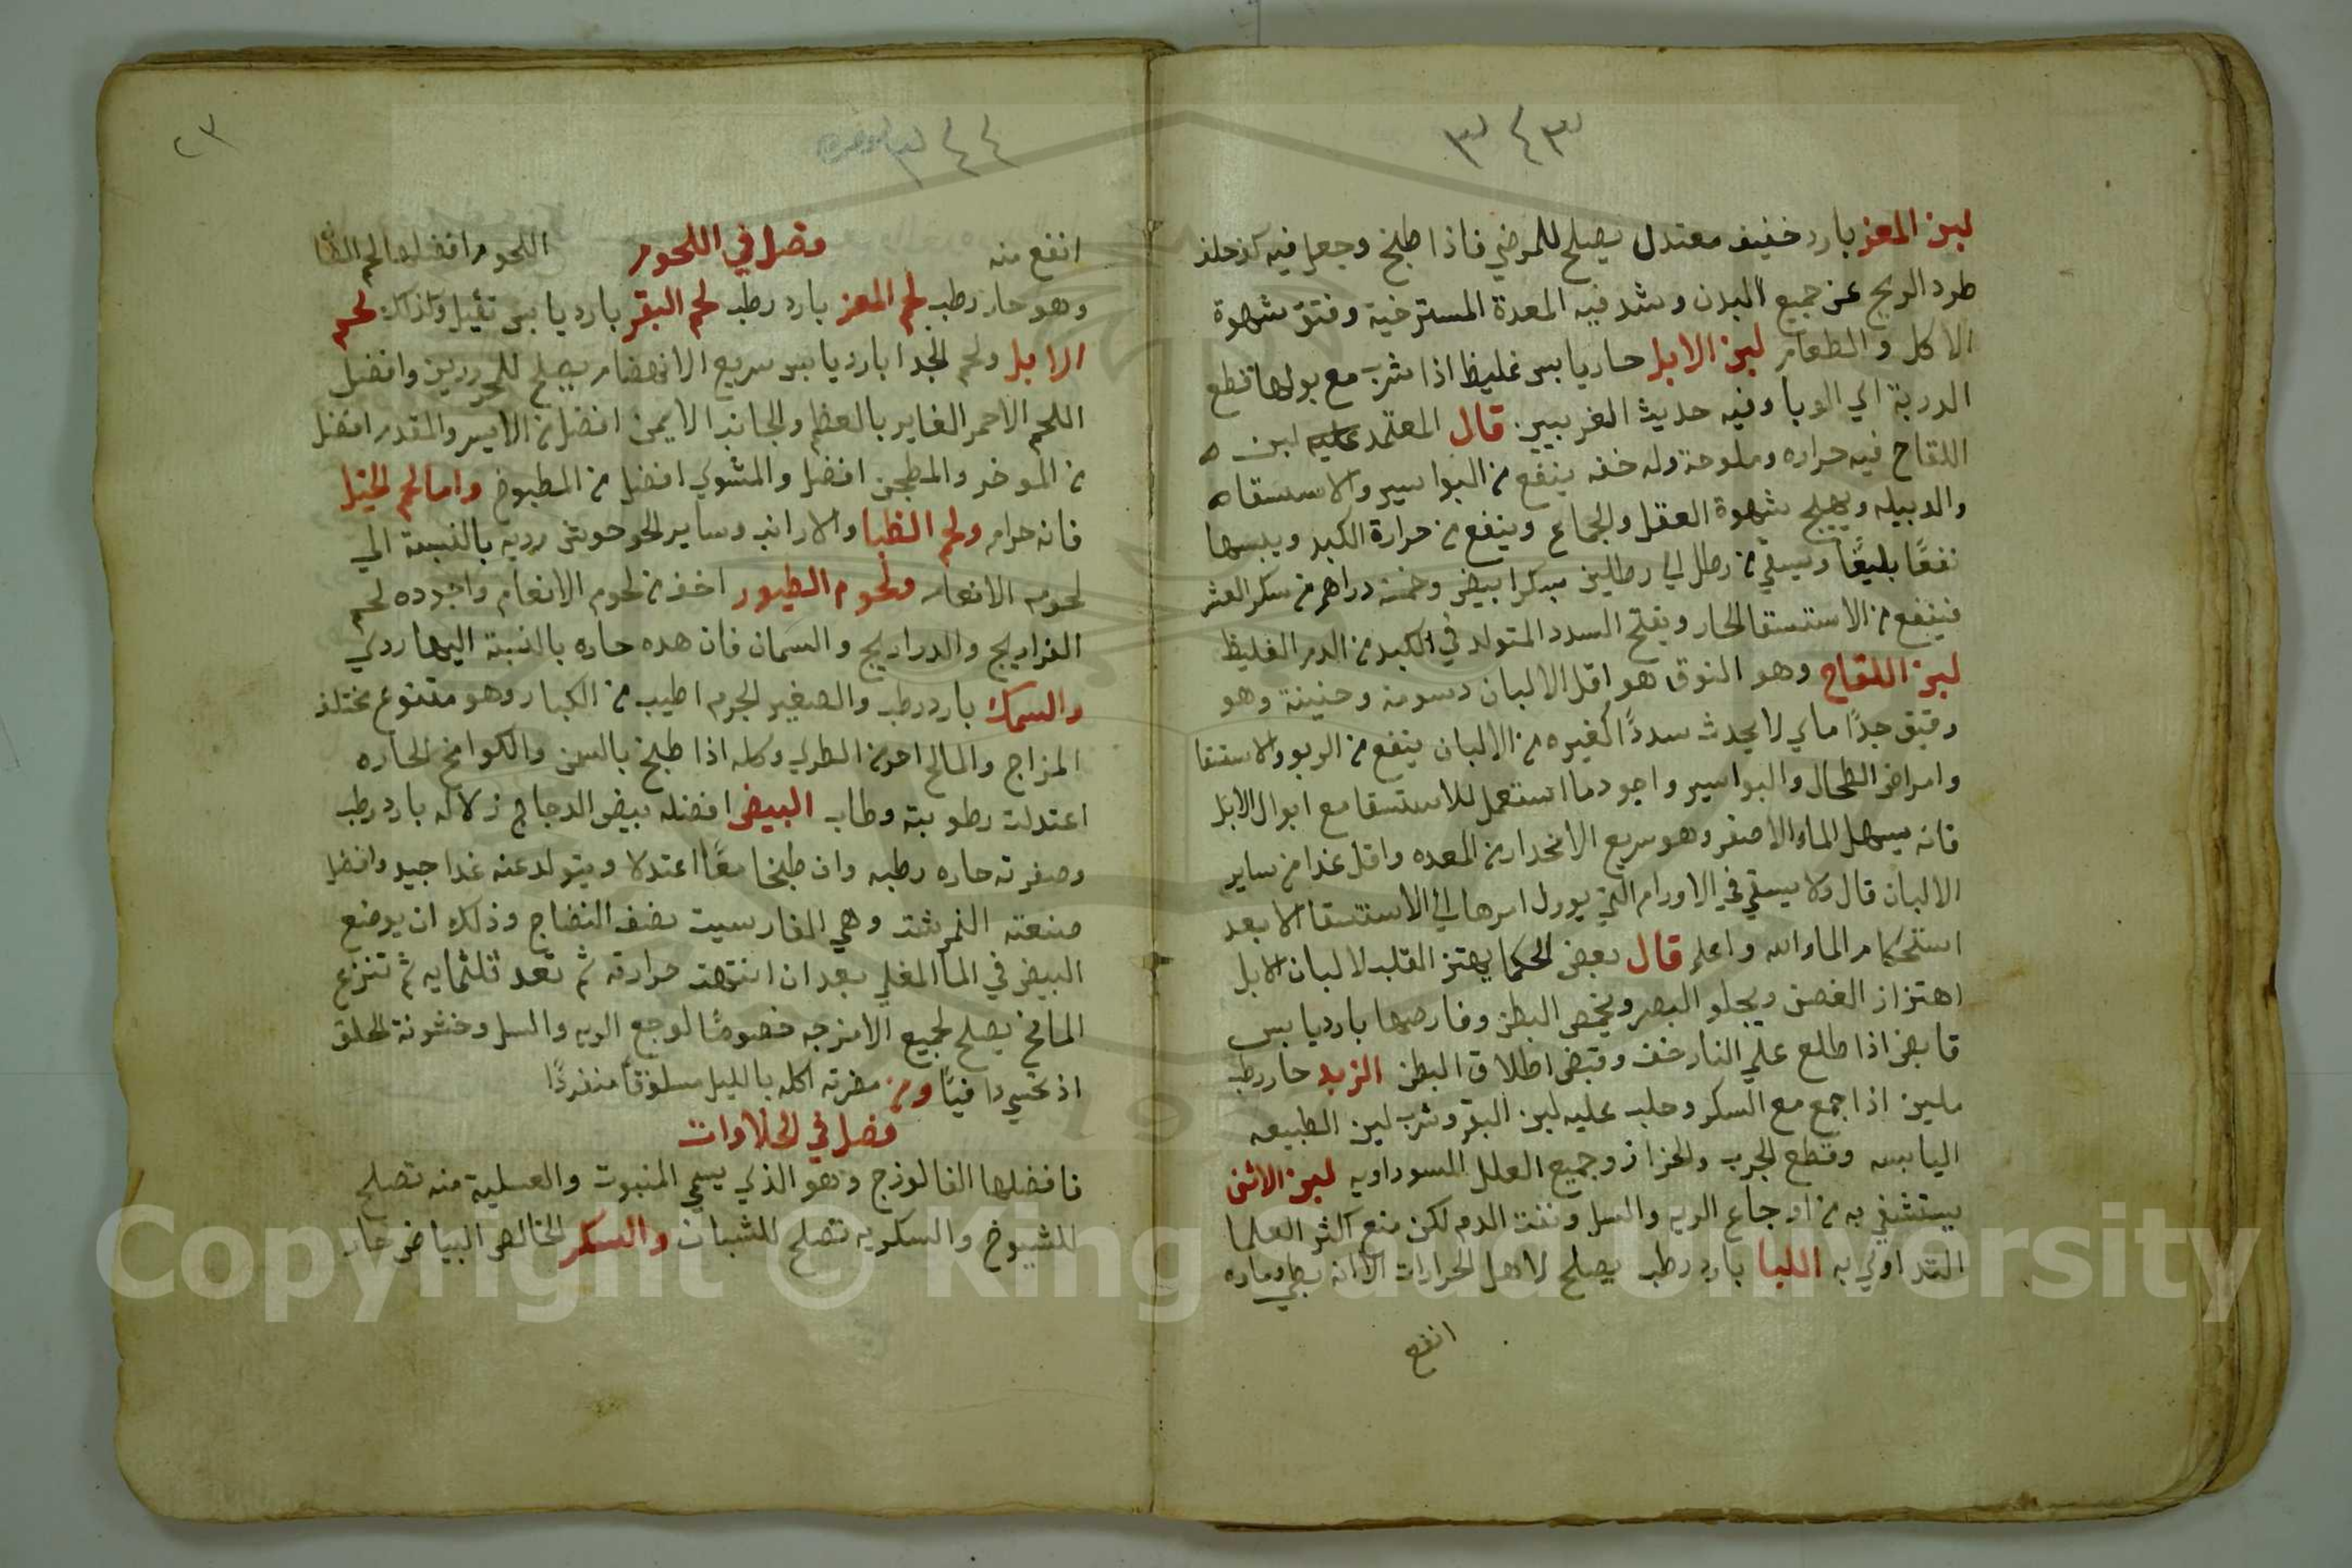 ٣٤٣
لبن المعز بارد خفيف معتدل يصلح للمرضي فاذا طبخ وجعل فيه
طرد الريح عن جميع البدن وشد فيه المعدة المسترخية وفتق شهوة
الاكل والطعام لبن الابل حار يابس غليظ اذا شرب مع بولها قطع
الدربة الي الوبا وفيه حديث الغربيين قال المعتمد عليه لبن ه
اللقاح فيه حراره وملوحة وله خفه ينفع من البواسير والاستسقا ه
والدبيله ويهيج شهوة العقل والجماع وينفع من حرارة الكبد ويبسها
نفعًا بليغًا ويسقي من رطل الي رطلين بسكر ابيض وخمسة دراهم من سكر العشر
فينفع من الاستسقا الحار ويفتح السدد المتولد في الكبد من الدم الغليظ
لبن اللقاح وهو النوق هو اقل الالبان دسومة وجنينة وهو
رقيق جدًا ماي لا يحدث سددًا كغيره من الالبان ينفع من الربو والاستسقا
وامراض الطحال والبواسير واجود ما استعمل للاستسقا مع ابوال الابل
فانه يسهل الماء الاصفر وهو سريع الانحدار من المعده واقل غذا من ساير
الالبان قال ولا يسقي في الاورام التي يوول امرها الي الاستسقا الا بعد
استحكام الماء والله واعلم قال بعض الحكما يهتز القلب لالبان الابل
اهتزاز الغصن ويجلو البصر ويخمص البطن وقارصها بارد يابس
قابض اذا طلع علي النار خف وقبض اطلاق البطن الزبد حار رطب
ملين اذا جمع مع السكر وحلب عليه لبن البقر وشرب لين الطبيعه
اليابسه وقطع الجرب والحزاز وجميع العلل السوداويه لبن الاتن
يستشفي به من اوجاع الريه والسل ونفث الدم لكن منع اكثر العلما
التداوي به اللبا بارد رطب يصلح لاهل الحرارات الا انه بطي وماره
انفع
٢٣
٣٤٤
انفع منه فصل في اللحوم اللحوم افضلها لحم الضا
وهو حار رطب لحم المعز بارد رطب لحم البقر بارد يابس ثقيل وكذلك لحم
الابل ولحم الجدا بارد يابس سريع الانهضام يصلح للمحرورين وافضل
اللحم الاحمر الغاير بالعظم والجانب الايمن افضل من الايسر والمقدم افضل
من الموخر والمطجن افضل والمشوي افضل من المطبوخ واما لحم الخيل
فانه حرام ولحم الظبا والارانب وساير الحوحوش رديه بالنسبة الي
لحوم الانعام ولحوم الطيور اخف من لحوم الانعام واجوده لحم
الفراريج والدراريج والسمان فان هده حاره بالنسبة اليها ردي
والسمك بارد رطب والصغير الجرم اطيب من الكبار وهو متنوع مختلف
المزاج والمالح احر من الطري وكله اذا طبخ بالسمن والكوامخ الحاره
اعتدلت رطوبته وطاب البيض افضله بيض الدجاج زلاله بارد رطب
وصفرته حاره رطبه وان طبخا معًا اعتدلا ويتولد عنه غدا جيد وافضل
صنعته النمرشت وهي الفارسيت نصف النضاج وذلك ان يوضع
البيض في الما المغلي بعد ان انتهت حرارته ثم تعد ثلثمايه ثم تنزع
المافخ يصلح لجميع الامزجه خصوصًا لوجع الريه والسل وخشونة الحلق
اذ تحسي دافيًا ومن مضرته اكله بالليل مسلوقًا منفردًا
فصل في الحلاوات
فافضلها الفالوذج وهو الذي يسمي المنبوت والعسلية منه تصلح
للشيوخ والسكريه تصلح للشبان والسكر الخالص البياض حار
Copyright © King Saud University